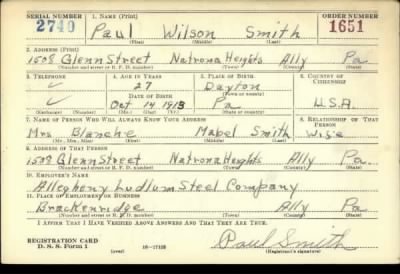 SERIAL NUMBER 1. NAME (Print) ORDER NUMBER
2740 Paul Wilson Smith 1651
(First) (Middle) (Last)
2. ADDRESS (Print)
1508 Glenn Street Natrona Heights Ally Pa.
(Number and street or R. F. D. number) (Town) (County) (State)
3. TELEPHONE 4. AGE IN YEARS 5. PLACE OF BIRTH 6. COUNTRY OF CITIZENSHIP
27 Dayton
DATE OF BIRTH (Town or county)
Oct 14 1913 Pa U.S.A.
(Exchange) (Number) (Mo.) (Day) (Yr.) (State or country)
7. NAME OF PERSON WHO WILL ALWAYS KNOW YOUR ADDRESS 8. RELATIONSHIP OF THAT PERSON
Mrs Blanche Mabel Smith Wife
(Mr., Mrs., Miss) (First) (Middle) (Last)
9. ADDRESS OF THAT PERSON
1508 Glenn Street Natrona Heights Ally Pa.
(Number and street or R. F. D. number) (Town) (County) (State)
10. EMPLOYER'S NAME
Allegheny Ludlum Steel Company
11. PLACE OF EMPLOYMENT OR BUSINESS
Brackenridge Ally Pa.
(Number and street or R. F. D. number) (Town) (County) (State)
I AFFIRM THAT I HAVE VERIFIED ABOVE ANSWERS AND THAT THEY ARE TRUE.
REGISTRATION CARD
D. S. S. Form 1 (over) 16-17105 Paul Smith
(Registrant's signature)